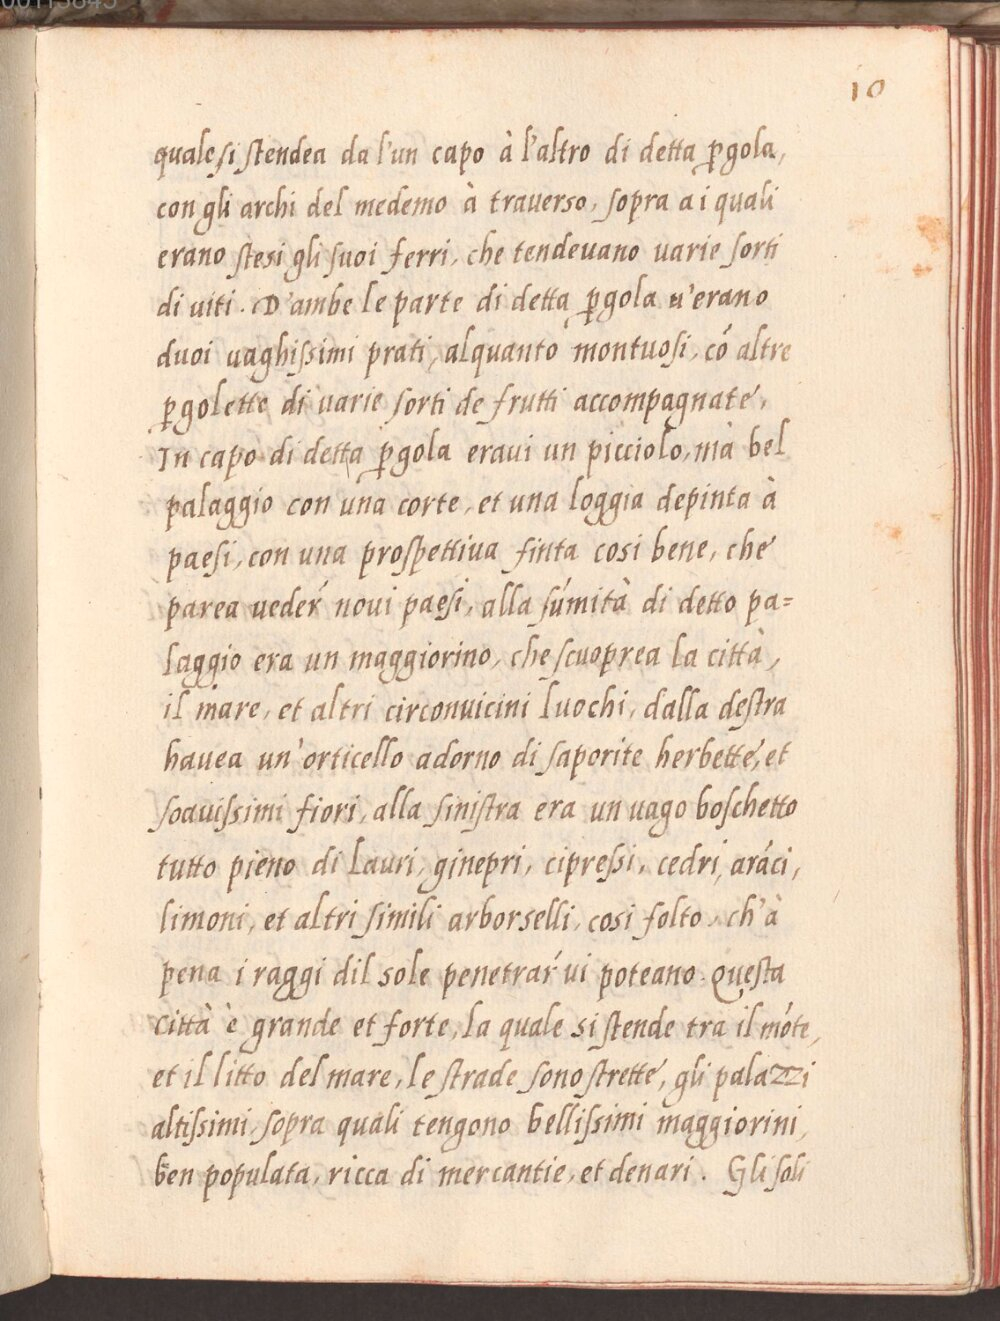 10
quale si stendea da l'un capo à l'altro di detta ꝑgola,
con gli archi del medemo à trauerso, sopra a i quali
erano stesi gli suoi ferri, che tendeuano varie sorti
di uiti. D'ambe le parte di detta ꝑgola u'erano
duoi uaghissimi prati, alquanto montuosi, có altre
ꝑgolette di varie sorti de frutti accompagnate,
In capo di detta ꝑgola eraui un picciolo, mà bel
palaggio con una corte, et una loggia depinta à
paesi, con una prospettiua finta cosi bene, che
parea ueder noui paesi, alla súmità di detto pa=
laggio era un maggiorino, che scuoprea la città,
il mare, et altri circonuicini luochi, dalla destra
hauea un'orticello adorno di saporite herbette, et
soauissimi fiori, alla sinistra era un uago boschetto
tutto pieno di Lauri, ginepri, cipressi, cedri, aráci,
limoni, et altri simili arborselli, cosi folto, ch'à
pena i raggi dil sole penetrar ui poteano. Questa
città è grande et forte, la quale si stende tra il móte,
et il litto del mare, le strade sono strette, gli palazzi
altissimi, sopra quali tengono bellissimi maggiorini,
ben populata, ricca di mercantie, et denari. Gli soli